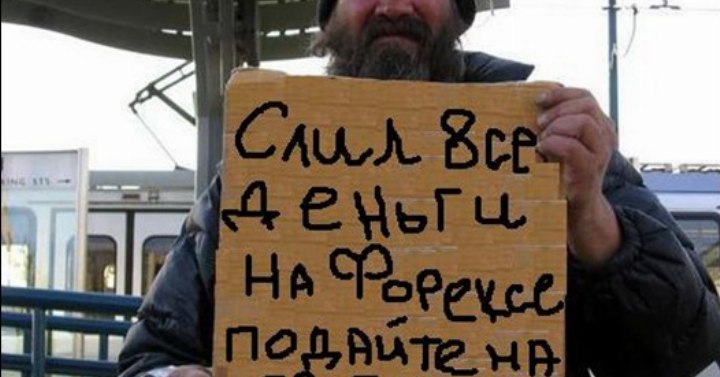 Слил все
деньги
на Форексе
подайте на